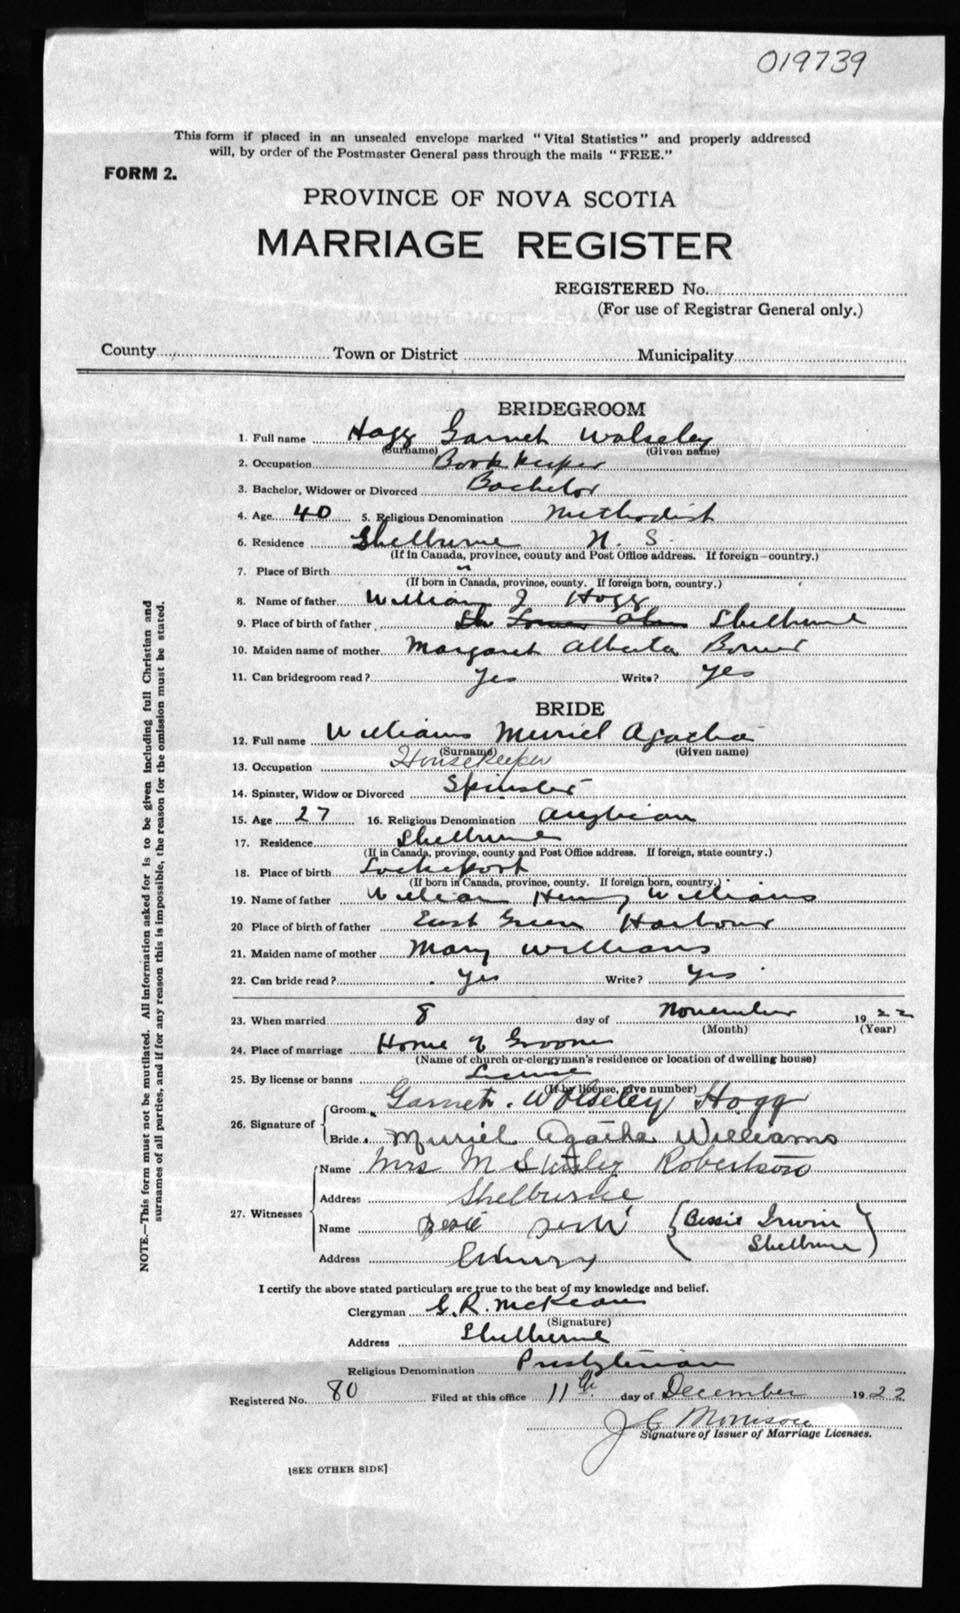 019739
This form if placed in an unsealed envelope marked "Vital Statistics" and properly addressed
will, by order of the Postmaster General pass through the mails "FREE."
FORM 2.
PROVINCE OF NOVA SCOTIA
MARRIAGE REGISTER
REGISTERED No.
(For use of Registrar General only.)
County Town or District Municipality
BRIDEGROOM
1. Full name Hogg Garnet Wolseley
(Surname) (Given name)
2. Occupation Bookkeeper
3. Bachelor, Widower or Divorced Bachelor
4. Age 40 5. Religious Denomination Methodist
6. Residence Shelburne N. S.
(If in Canada, province, county and Post Office address. If foreign—country.)
7. Place of Birth "
(If born in Canada, province, county. If foreign born, country.)
8. Name of father William J Hogg
9. Place of birth of father Shelburne
10. Maiden name of mother Margaret Alberta Bower
11. Can bridegroom read? Yes Write? Yes
BRIDE
12. Full name Williams Muriel Agatha
(Surname) (Given name)
13. Occupation Housekeeper
14. Spinster, Widow or Divorced Spinster
15. Age 27 16. Religious Denomination Anglican
17. Residence Shelburne
(If in Canada, province, county and Post Office address. If foreign, state country.)
18. Place of birth Lockeport
(If born in Canada, province, county. If foreign born, country.)
19. Name of father William Henry Williams
20 Place of birth of father East Green Harbour
21. Maiden name of mother Mary Williams
22. Can bride read? Yes Write? Yes
23. When married 8 day of November 1922
(Month) (Year)
24. Place of marriage Home of Groom
(Name of church or clergyman's residence or location of dwelling house)
25. By license or banns License
(If by license, give number)
26. Signature of
Groom Garnet. Wolseley Hogg
Bride Muriel Agatha Williams
27. Witnesses
Name Mrs M Robertson
Address Shelburne
Name (Bessie Irwin
Address Shelburne)
I certify the above stated particulars are true to the best of my knowledge and belief.
Clergyman C. R. McKean
(Signature)
Address Shelburne
Religious Denomination Presbyterian
Registered No. 80 Filed at this office 11th day of December 1922
J C Morrison
Signature of Issuer of Marriage Licenses.
[SEE OTHER SIDE]
NOTE.—This form must not be mutilated. All information asked for is to be given including full Christian and
surnames of all parties, and if for any reason this is impossible, the reason for the omission must be stated.